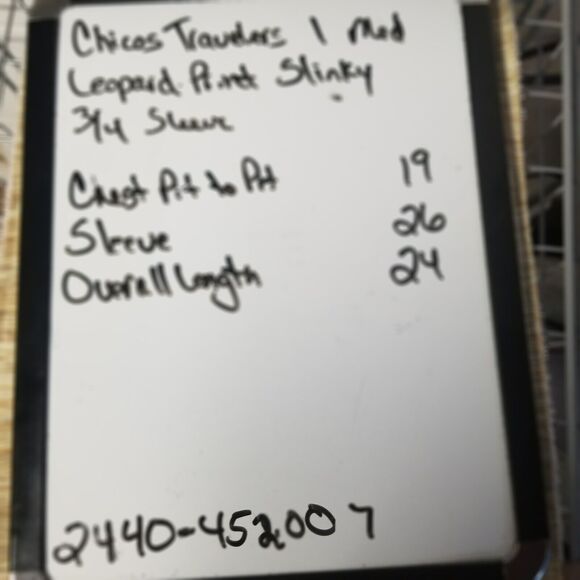 Chicos Travelers 1 Med
Leopard Print Slinky
3/4 Sleeve
Chest Pit to Pit 19
Sleeve 26
Overall Length 24
2440-452007